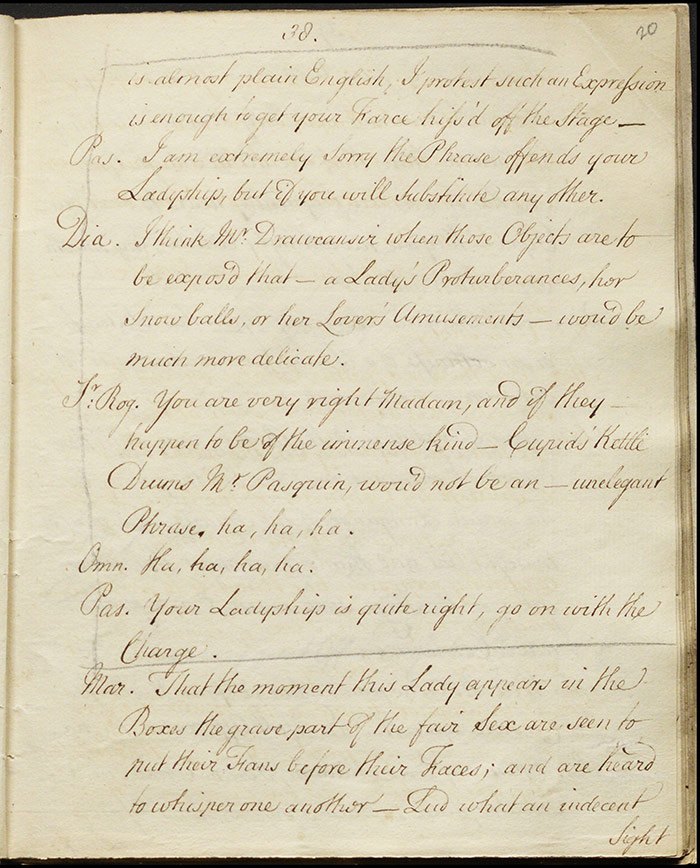 38.
20
is almost plain English, I protest such an Expression
is enough to get your Farce hiss'd off the Stage —
Pas. I am extremely Sorry the Phrase offends your
Ladyship, but if you will Substitute any other.
Dia. I think Mr. Drawcansir when those Objects are to
be expos'd that — a Lady's Proturberances, her
Snow balls, or her Lover's Amusements — wou'd be
much more delicate.
Sr. Rog. You are very right Madam, and if they —
happen to be of the immense kind — Cupid's Kettle
Drums Mr. Pasquin, wou'd not be an — unelegant
Phrase. ha, ha, ha.
Omn. Ha, ha, ha, ha.
Pas. Your Ladyship is quite right, go on with the
Charge.
Mar. That the moment this Lady appears in the
Boxes the grave part of the fair Sex are seen to
put their Fans before their Faces; and are heard
to whisper one another — Lud what an indecent
Sight